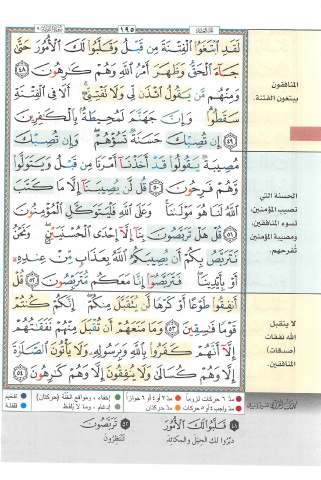 ١٩٥
لَقَدِ ٱبْتَغَوُا۟ ٱلْفِتْنَةَ مِن قَبْلُ وَقَلَّبُوا۟ لَكَ ٱلْأُمُورَ حَتَّىٰ
جَآءَ ٱلْحَقُّ وَظَهَرَ أَمْرُ ٱللَّهِ وَهُمْ كَـٰرِهُونَ ٤٨
وَمِنْهُم مَّن يَقُولُ ٱئْذَن لِّى وَلَا تَفْتِنِّىٓ أَلَا فِى ٱلْفِتْنَةِ
سَقَطُوا۟ وَإِنَّ جَهَنَّمَ لَمُحِيطَةٌۢ بِٱلْكَـٰفِرِينَ
٤٩ إِن تُصِبْكَ حَسَنَةٌ تَسُؤْهُمْ وَإِن تُصِبْكَ
مُصِيبَةٌ يَقُولُوا۟ قَدْ أَخَذْنَآ أَمْرَنَا مِن قَبْلُ وَيَتَوَلَّوا۟
وَّهُمْ فَرِحُونَ ٥٠ قُل لَّن يُصِيبَنَآ إِلَّا مَا كَتَبَ
ٱللَّهُ لَنَا هُوَ مَوْلَىٰنَا وَعَلَى ٱللَّهِ فَلْيَتَوَكَّلِ ٱلْمُؤْمِنُونَ
٥١ قُلْ هَلْ تَرَبَّصُونَ بِنَآ إِلَّآ إِحْدَى ٱلْحُسْنَيَيْنِ وَنَحْنُ
نَتَرَبَّصُ بِكُمْ أَن يُصِيبَكُمُ ٱللَّهُ بِعَذَابٍ مِّنْ عِندِهِۦٓ
أَوْ بِأَيْدِينَا فَتَرَبَّصُوٓا۟ إِنَّا مَعَكُم مُّتَرَبِّصُونَ ٥٢ قُلْ
أَنفِقُوا۟ طَوْعًا أَوْ كَرْهًا لَّن يُتَقَبَّلَ مِنكُمْ إِنَّكُمْ كُنتُمْ
قَوْمًا فَـٰسِقِينَ ٥٣ وَمَا مَنَعَهُمْ أَن تُقْبَلَ مِنْهُمْ نَفَقَـٰتُهُمْ
إِلَّآ أَنَّهُمْ كَفَرُوا۟ بِٱللَّهِ وَبِرَسُولِهِۦ وَلَا يَأْتُونَ ٱلصَّلَوٰةَ
إِلَّا وَهُمْ كُسَالَىٰ وَلَا يُنفِقُونَ إِلَّا وَهُمْ كَـٰرِهُونَ ٥٤
المنافقون
يبتغون الفتنة.
الحسنة التي
تصيب المؤمنين،
تسوء المنافقين،
ومصيبة المؤمنين
تفرحهم.
لا يتقبل
الله نفقات
(صدقات)
المنافقين.
مدّ ٦ حركات لزوماً
مدّ ٢ أو ٤ أو ٦ جوازاً
إخفاء، ومواقع الغنّة (حركتان)
تفخيم
مدّ واجب ٤ أو ٥ حركات
مدّ حركتان
إدغام، وما لا يُلفظ
قلقلة
٤٨ قَلَّبُوا۟ لَكَ ٱلْأُمُورَ
دبّروا لك الحِيَل والمكائد
٥٢ تَرَبَّصُونَ
تنتظرون